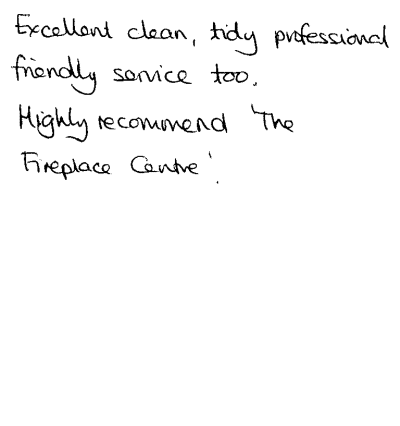 Excellent clean, tidy professional
friendly service too.
Highly recommend 'The
Fireplace Centre'.